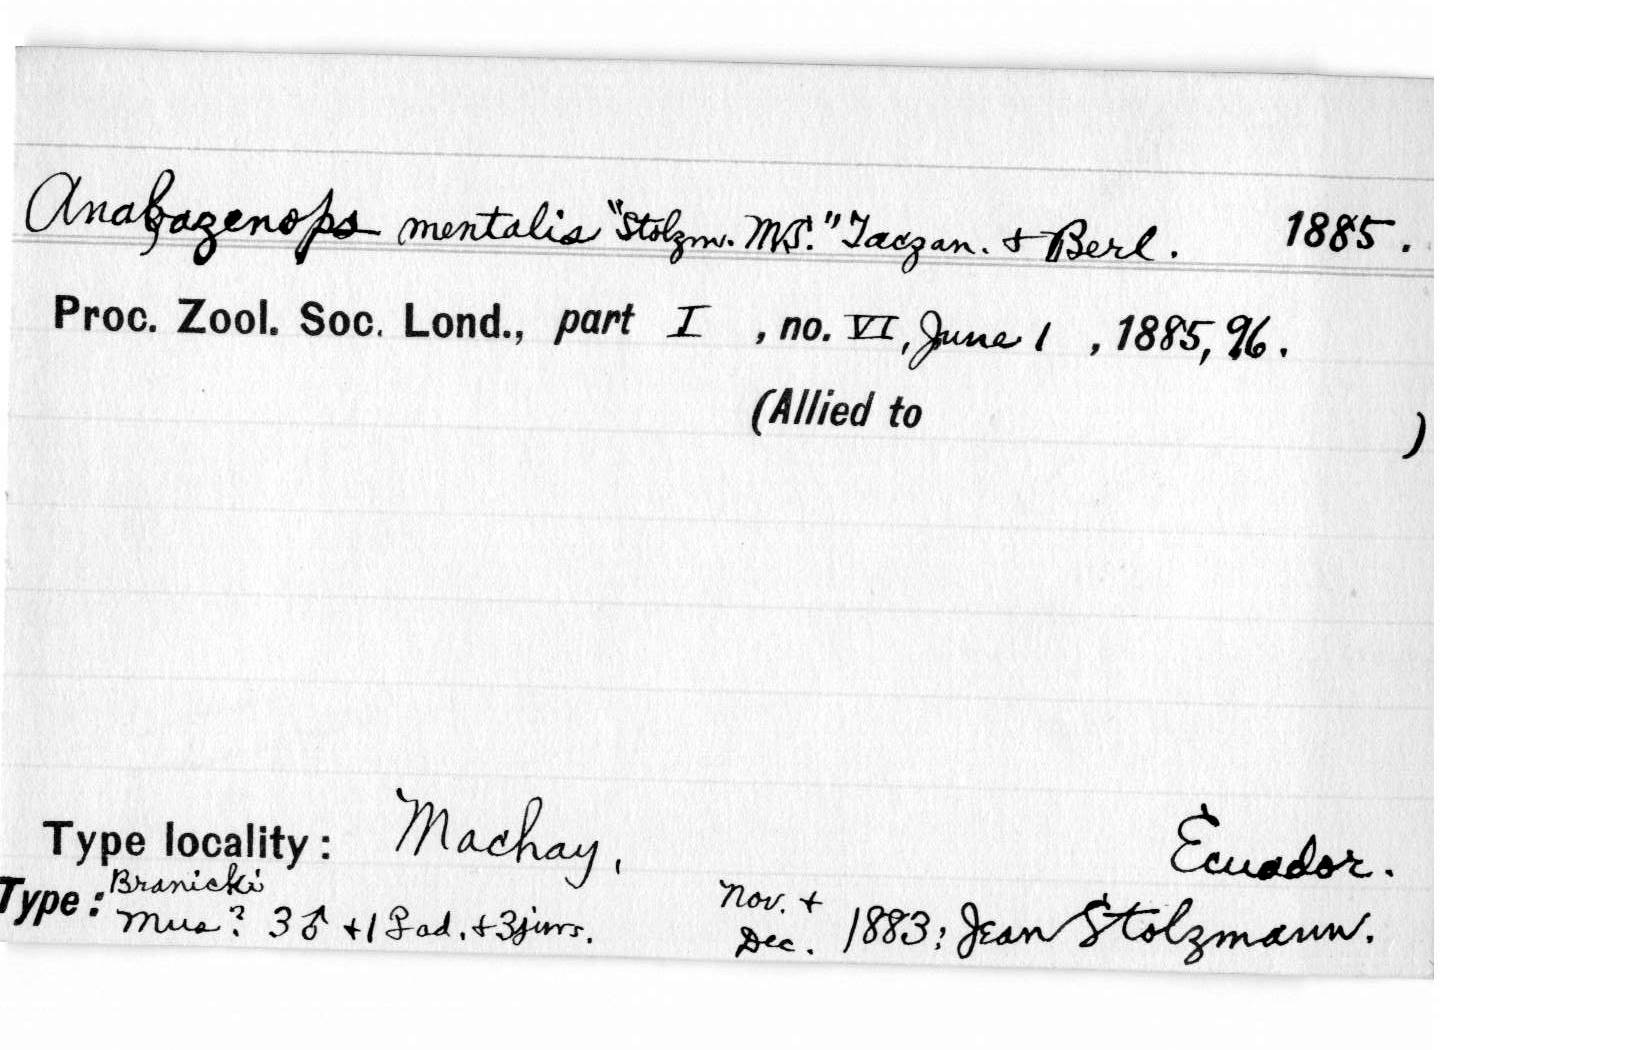 Anabazenops mentalis "Stolzm. MS." Taczan. & Berl. 1885.
Proc. Zool. Soc. Lond., part I, no. VI, June 1, 1885, 96.
(Allied to )
Type locality: Machay, Ecuador.
Type: Branicki Mus? 3♂ + 1♀ ad. + 3 juvs. Nov. + Dec. 1883; Jean Stolzmann.